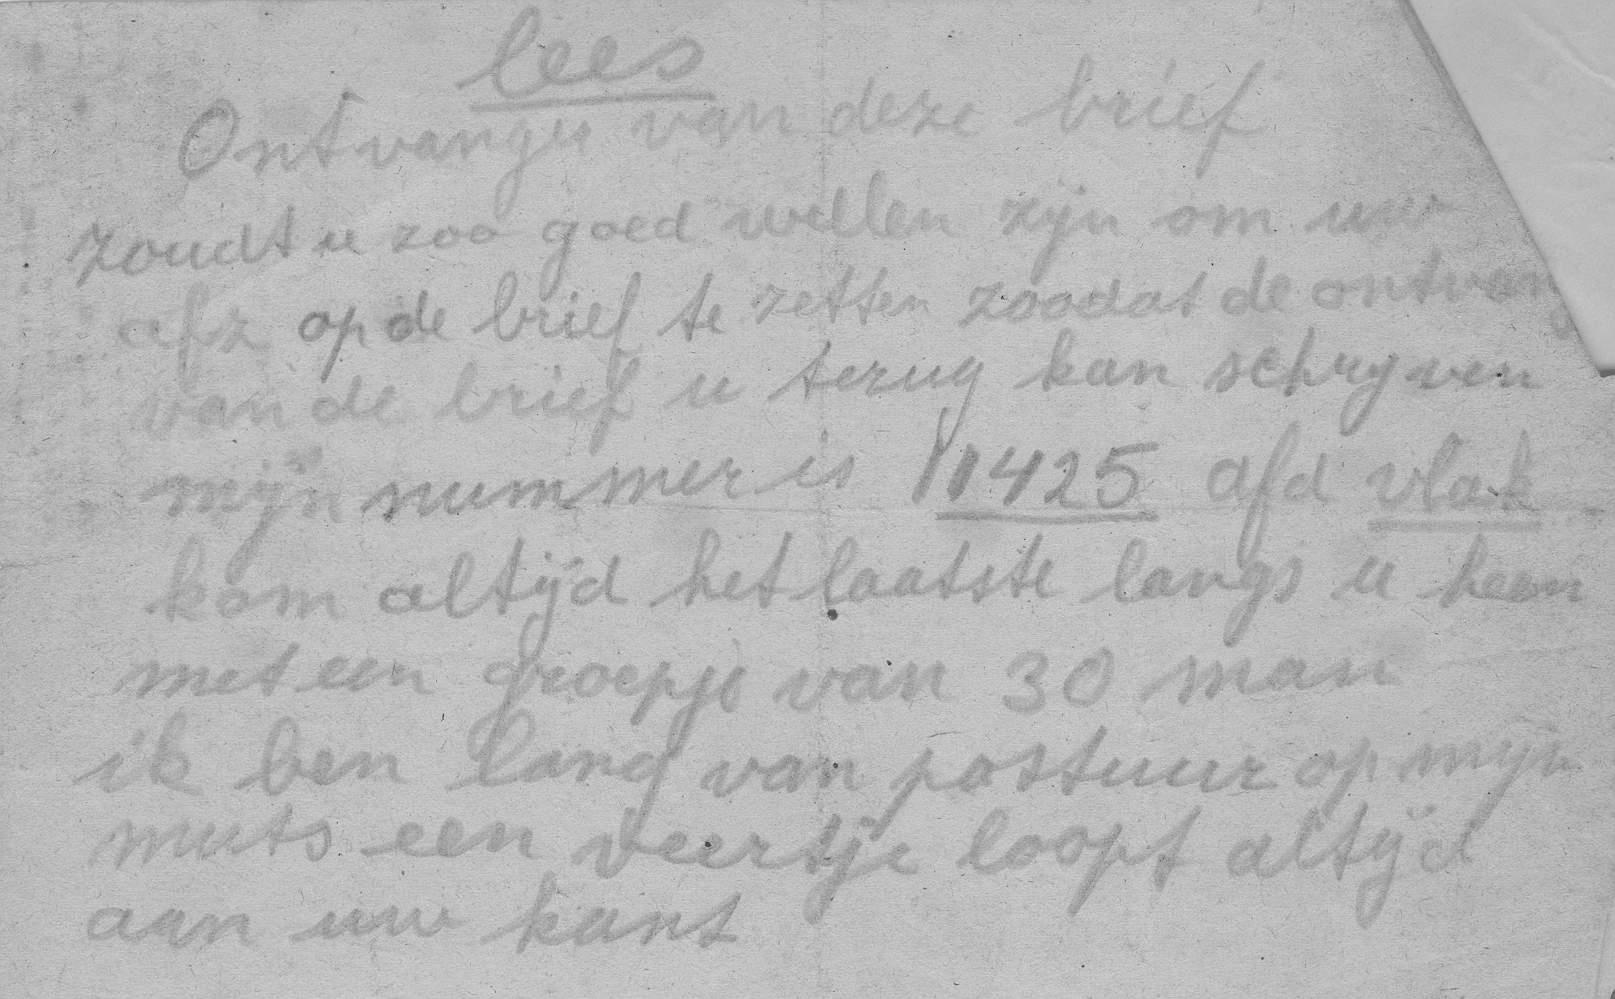 lees
Ontvanger van deze brief
zoudt u zoo goed willen zijn om uw
afz op de brief te zetten zoodat de ontvang
van de brief u terug kan schrijven
mijn nummer is 11425 afd vlak
kom altijd het laatste langs u heen
met een groepje van 30 man
ik ben lang van postuur op mijn
muts een veertje loopt altijd
aan uw kant